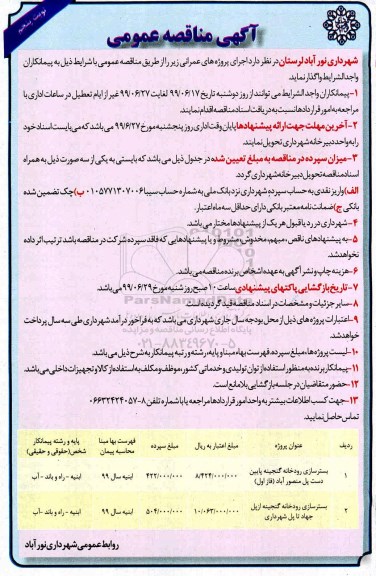 نوبت پنجم
آگهی مناقصه عمومی
شهرداری نورآباد لرستان در نظر دارد اجرای پروژه های عمرانی زیر را از طریق مناقصه عمومی با شرایط ذیل به پیمانکاران
واجد الشرایط واگذار نماید.
۱- پیمانکاران واجد الشرایط می توانند از روز دوشنبه تاریخ ۹۹/۰۶/۱۷ لغایت ۹۹/۰۶/۲۷ غیر از ایام تعطیل در ساعات اداری با
مراجعه به امور قراردادها نسبت به دریافت اسناد مناقصه اقدام نمایند.
۲- آخرین مهلت جهت ارائه پیشنهادها پایان وقت اداری روز پنجشنبه مورخ ۹۹/۶/۲۷ می باشد که می بایست اسناد خود
را به واحد دبیرخانه شهرداری تحویل نمایند.
۳- میزان سپرده در مناقصه به مبلغ تعیین شده در جدول ذیل می باشد که بایستی به یکی از سه صورت ذیل به همراه
اسناد مناقصه تحویل دبیرخانه شهرداری گردد.
الف) واریز نقدی به حساب سپرده شهرداری نزد بانک ملی به شماره حساب سیبا ۰۱۰۵۷۷۱۳۰۷۰۰۶ ب) چک تضمین شده
بانکی ج) ضمانت نامه معتبر بانکی دارای حداقل سه ماه اعتبار.
۴- شهرداری در رد یا قبول هر یک از پیشنهادها مختار می باشد.
۵- به پیشنهادهای ناقص، مبهم، مخدوش، مشروط و یا پیشنهادهایی که فاقد سپرده شرکت در مناقصه باشد ترتیب اثر داده
نخواهد شد.
۶- هزینه چاپ و نشر آگهی به عهده اشخاص برنده مناقصه می باشد.
۷- تاریخ بازگشایی پاکتهای پیشنهادی ساعت ۱۰ صبح روز شنبه مورخ ۹۹/۰۶/۲۹ می باشد.
۸- سایر جزئیات و مشخصات در اسناد مناقصه قید گردیده است.
۹- اعتبارات پروژه های ذیل از محل بودجه سال جاری شهرداری می باشد که به فراخور درآمد شهرداری طی سه سال پرداخت
خواهد شد.
۱۰- لیست پروژه ها، مبلغ سپرده، فهرست بهاء مبنا و پایه، رشته و رتبه پیمانکار به شرح ذیل می باشد.
۱۱- پیمانکار برنده به منظور استفاده از توان تولیدی و خدماتی کشور، موظف و مکلف به استفاده از کالا و تجهیزات داخلی می باشد.
۱۲- حضور متقاضیان در جلسه بازگشایی بلامانع است.
۱۳- جهت کسب اطلاعات بیشتر به واحد امور قراردادها مراجعه یا با شماره تلفن ۸-۰۶۶۳۲۴۲۴۰۵۷
تماس حاصل نمایید.
ردیف عنوان پروژه مبلغ اعتبار به ریال مبلغ سپرده فهرست بها مبنا محاسبه پیمان پایه و رشته پیمانکار شخص(حقوقی و حقیقی)
۱ بسترسازی رودخانه گنجینه پایین دست پل منصور آباد (فاز اول) ۸/۴۲۴/۰۰۰/۰۰۰ ۴۲۲/۰۰۰/۰۰۰ ابنیه سال ۹۹ ابنیه - راه و باند - آب
۲ بسترسازی رودخانه گنجینه از پل جهاد تا پل شهرداری ۱۰/۰۶۳/۰۰۰/۰۰۰ ۵۰۴/۰۰۰/۰۰۰ ابنیه سال ۹۹ ابنیه - راه و باند - آب
روابط عمومی شهرداری نورآباد